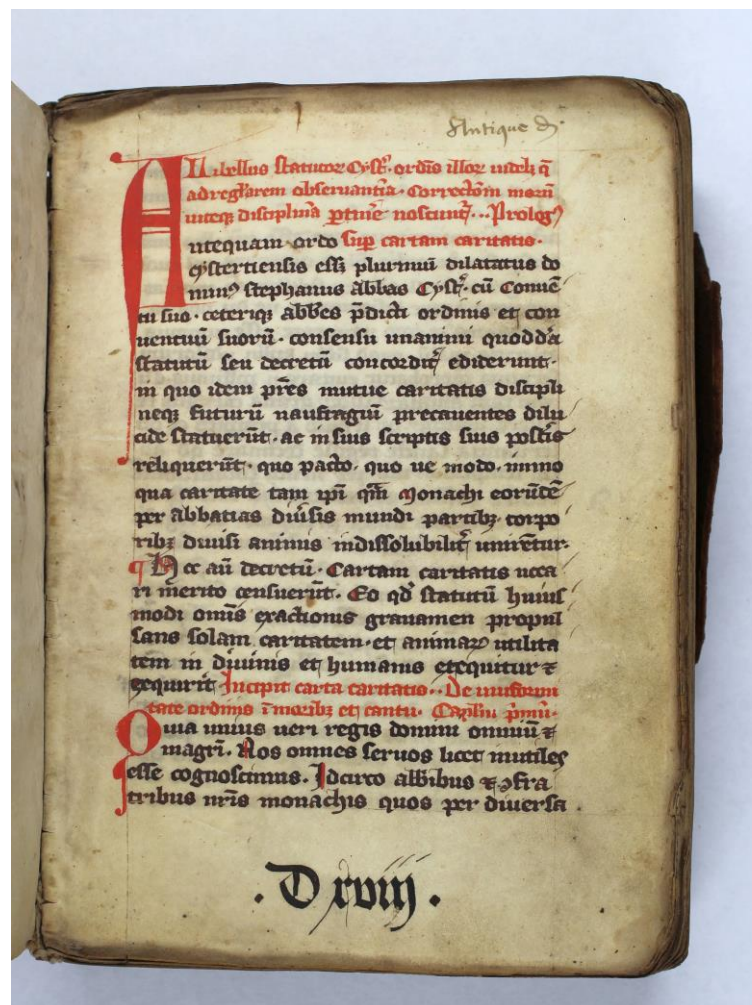 Antique d̄
Libellus statutoꝝ Cyst̄. ordīs illoꝝ videlꝫ q̄
ad regl̄arem obseruantiā. Correctōm morū
viteqꝫ disciplinā ꝑtine noscunt̄. Prologꝰ
Antequam ordo sup̱ cartam caritatis.
cystertiensis essꝫ plurimū dilatatus do
minꝰ stephanus abbas Cyst̄. cū Conuē
tu suo. ceteriqꝫ abb̄es p̄dicti ordinis et con
uentuū suorū. consensu unanimi quoddā
statutū seu decretū concordit̄ ediderunt.
in quo idem pr̄es mutue caritatis discipli
neqꝫ futurū naufragiū precauentes dilu
cide statuerūt. ac in suis scriptis suis post̄is
reliquerūt. quo pacto. quo ue modo. immo
qua caritate tam ip̄i q̄m monachi eorūdē
per abbatias diūsis mundi partibꝫ corpo
ribꝫ diuisi animis indissolubilit̄ unirētur.
Hoc aū decretū. Cartam caritatis uoca
ri merito censuerūt. Eo qd̄ statutū huius
modi omīs exactionis grauamen propul
sans solam caritatem. et animaꝝ utilita
tem in diuinis et humanis exequitur ⁊
exquirit Incipit carta caritatis. De unifor
mitate ordinis ī moribꝫ et cantu. Cap̄lm p̄mū.
Quia unius ueri regis domini omniū ⁊
magr̄i. Nos omnes seruos licet inutiles
esse cognoscimus. Idcirco abb̄ibus ⁊ ꝯfra
tribus nr̄is monachis quos per diuersa
. D xviij .